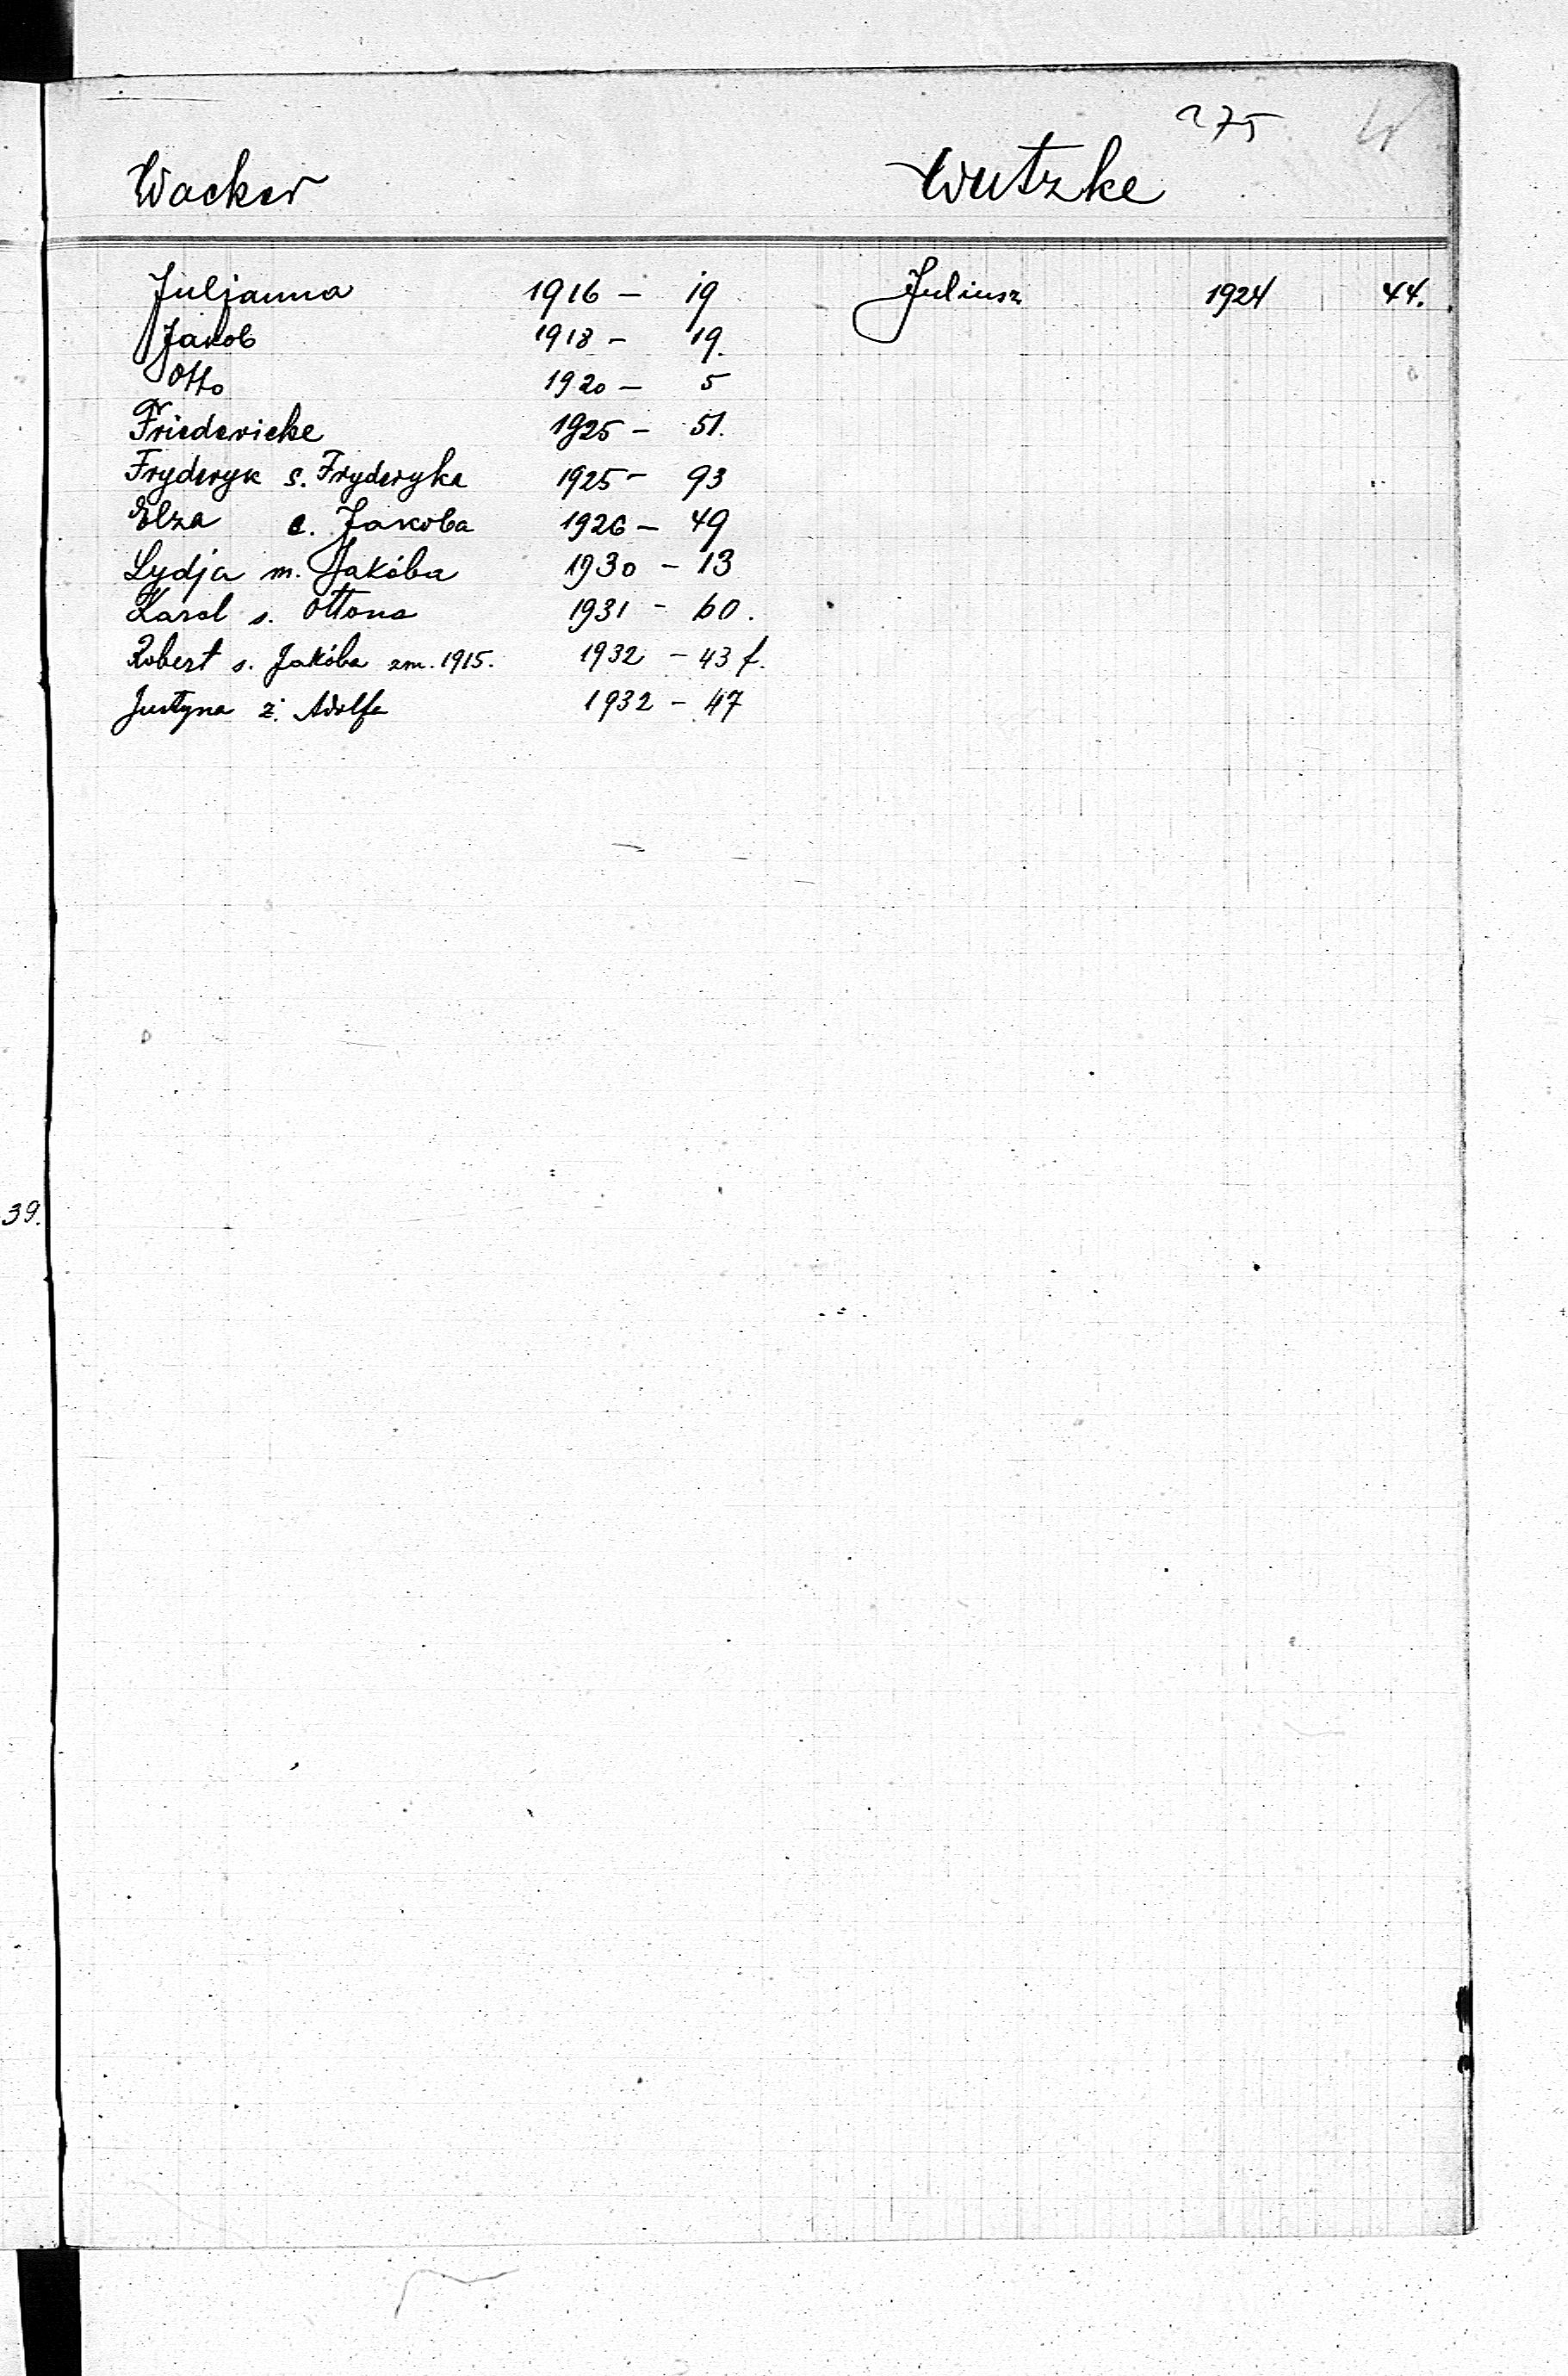 275 W
Wacker
Wutzke
Juljanna 1916 – 19
Jakob 1918 – 19.
Otto 1920 – 5
Friedericke 1925 – 51.
Fryderyk s. Fryderyka 1925 – 93
Elza c. Jakoba 1926 – 49
Lydja m. Jakóba 1930 – 13
Karol s. Ottona 1931 – 60.
Robert s. Jakóba zm. 1915. 1932 – 43 f.
Justyna ż. Adolfa 1932 – 47
Juliusz 1924 44.
39.